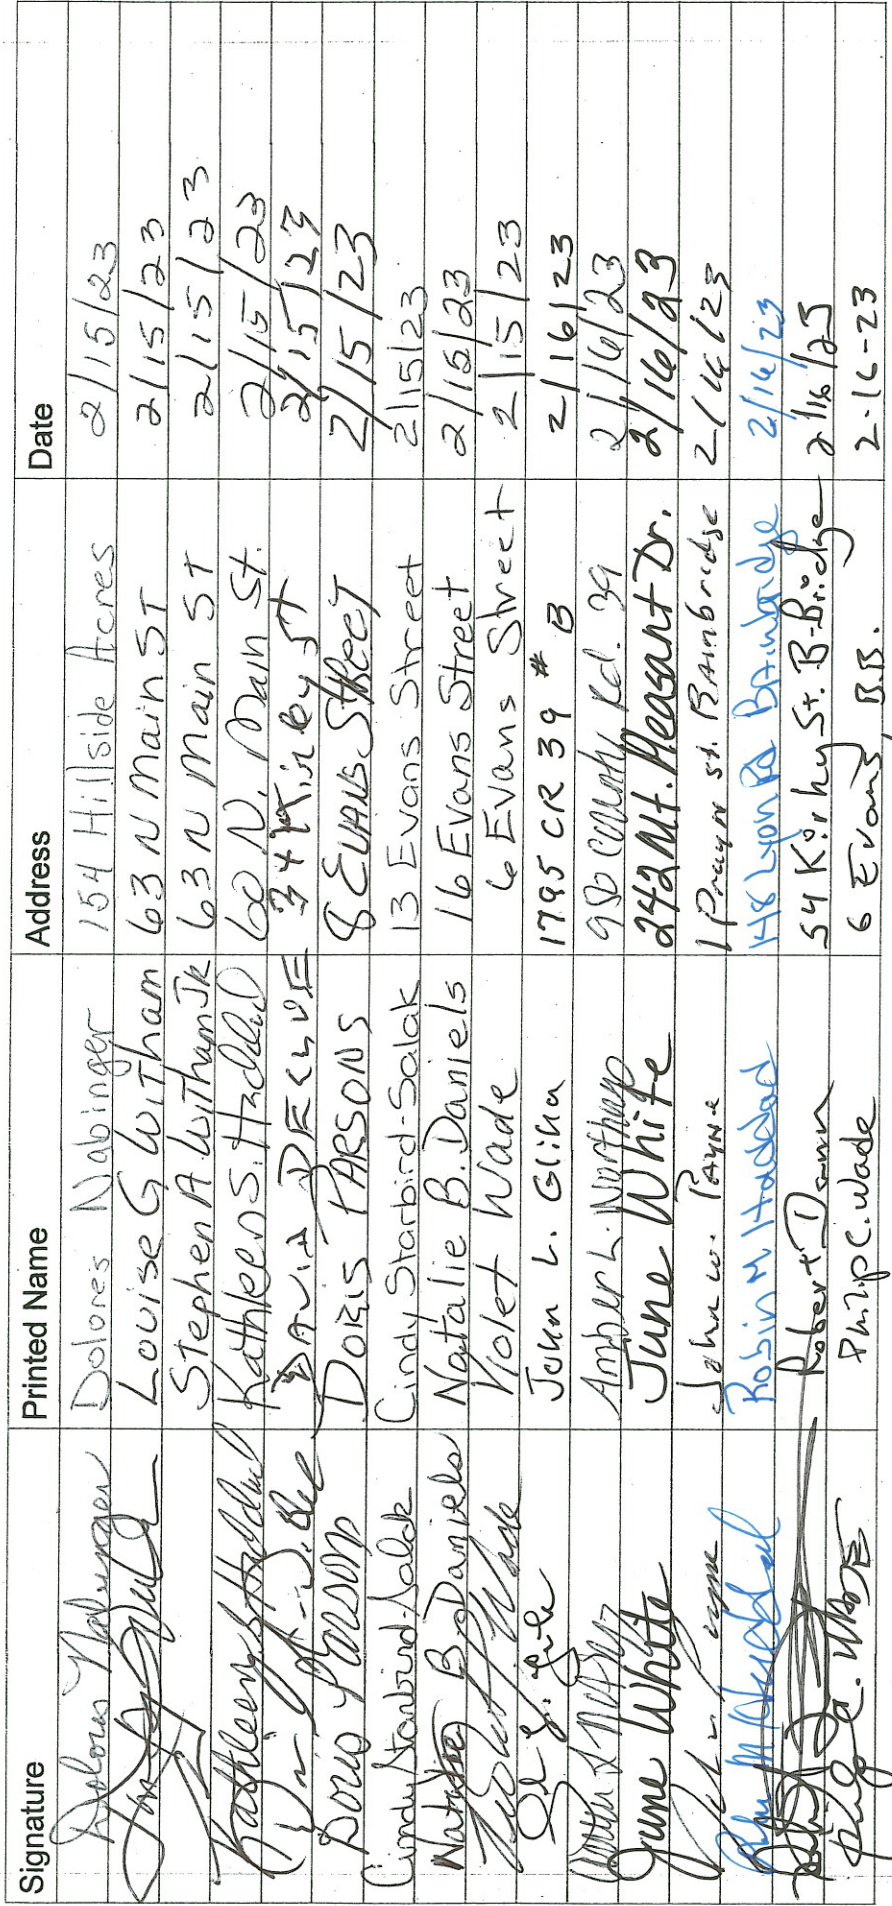 Signature Printed Name Address Date
Dolores Nabinger Dolores Nabinger 154 Hillside Acres 2/15/23
Louise G Witham 63 N Main ST 2/15/23
Stephen A Witham JR 63 N Main ST 2/15/23
Kathleen S Haddad Kathleen S. Haddad 60 N. Main St. 2/15/23
DAVID DECLUE 34 Kirby ST 2/15/23
Doris Parsons DORIS PARSONS 8 EVANS STREET 2/15/23
Cindy Starbird-Salak Cindy Starbird-Salak 13 Evans Street 2/15/23
Natalie B Daniels Natalie B. Daniels 16 Evans Street 2/15/23
Violet Wade Violet Wade 6 Evans Street 2/15/23
JOHN L. 1795 CR 39 # B 2/16/23
Amber L. Northrup 950 County Rd. 39 2/16/23
June White June White 242 Mt. Pleasant Dr. 2/16/23
John W. Payne 1 Payne St. Bainbridge 2/16/23
Robin M Haddad Robin M Haddad 148 Lyon Rd Bainbridge 2/16/23
Robert 54 Kirby St. B-Bridge 2/16/23
Philip C. Wade Philip C. Wade 6 Evans, B.B. 2-16-23